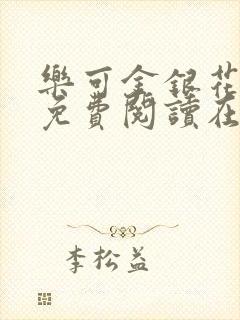 樂可金銀花
免費閱讀在
李松益